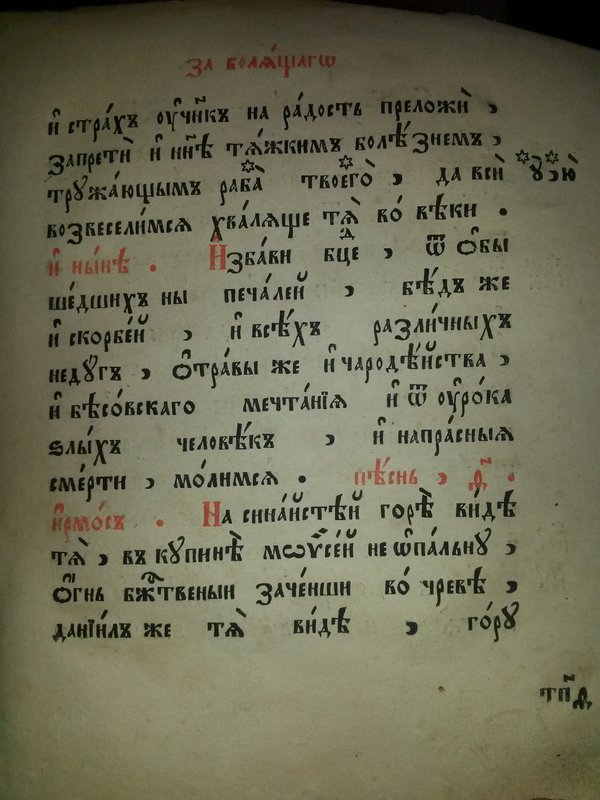 За болѧ́щагѡ
и҆ стра́хъ ᲂу҆чн҃къ на ра́дость преложѝ ,
запретѝ и҆ нн҃ѣ тѧ́жкимъ болѣ́знемъ ,
трꙋжа́ющымъ раба̀ твоегѡ̀ , да всѝ ꙋ҆ю̀
возвесели́мсѧ хва́лѧще тѧ̀ во́ вѣки .
и҆ ны́нѣ . И҆зба́ви бцⷣе , ѿ ѻ҆бы
ше́дшихъ ны печа́лей , бѣ́дъ же
и҆ скорбе́й , и҆ всѣ́хъ разли́чныхъ
недꙋгъ , ѻ҆тра́вы же и҆ чародѣ́йства ,
и҆ бѣсо́вскаго мечта́нїѧ и҆ ѿ ᲂу҆ро́ка
ѕлы́хъ человѣ́къ , и҆ напра́сныѧ
сме́рти , мо́лимсѧ . пѣ́снь , д҃ .
и҆рмо́съ . На сина́йстѣй горѣ̀ ви́дѣ
тѧ̀ , въ кꙋпинѣ̀ мѡѷсе́й не ѡ҆па́льнꙋ ,
ѻ҆́гнь бж҃твеныи заче́нши во́ чревѣ ,
данїи́лъ же тѧ̀ ви́дѣ , го́рꙋ
тп҃д